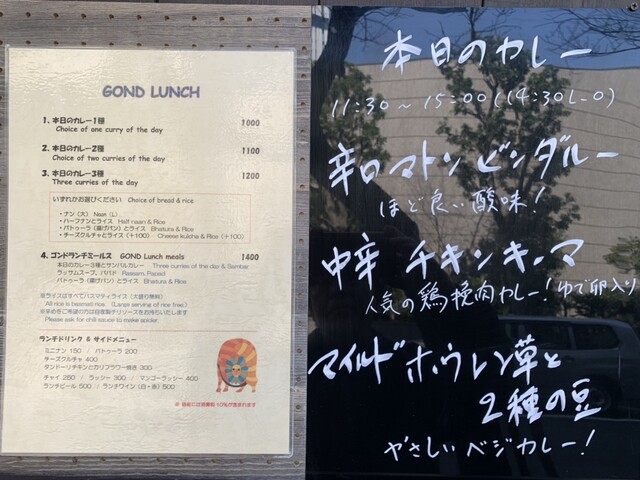 GOND LUNCH
1. 本日のカレー1種 1000
Choice of one curry of the day
2. 本日のカレー2種 1100
Choice of two curries of the day
3. 本日のカレー3種 1200
Three curries of the day
いずれかお選びください Choice of bread & rice
・ナン（大） Naan (L)
・ハーフナンとライス Half naan & Rice
・バトゥーラ（揚げパン）とライス Bhatura & Rice
・チーズクルチャとライス（＋100） Cheese kulcha & Rice (＋100)
4. ゴンドランチミールス GOND Lunch meals 1400
本日のカレー3種とサンバルカレー Three curries of the day & Sambar
ラッサムスープ、パパド Rassam, Papad
バトゥーラ（揚げパン）とライス Bhatura & Rice
※ライスはすべてバスマティライス（大盛り無料）
All rice is basmati rice (Large serving of rice free)
※辛めをご希望の方は自家製チリソースをお持ちいたします
Please ask for chili sauce to make spicier.
ランチドリンク & サイドメニュー
ミニナン 150 / バトゥーラ 200
チーズクルチャ 400
タンドーリチキンとカリフラワー焼き 300
チャイ 250 / ラッシー 300 / マンゴーラッシー 400
ランチビール 500 / ランチワイン（白・赤）500
本日のカレー
11:30～15:00(14:30L.O)
辛口マトンビンダルー
ほど良い酸味!
中辛 チキンキーマ
人気の鶏挽肉カレー!ゆで卵入り
マイルドホウレン草と
2種の豆
やさしいベジカレー!